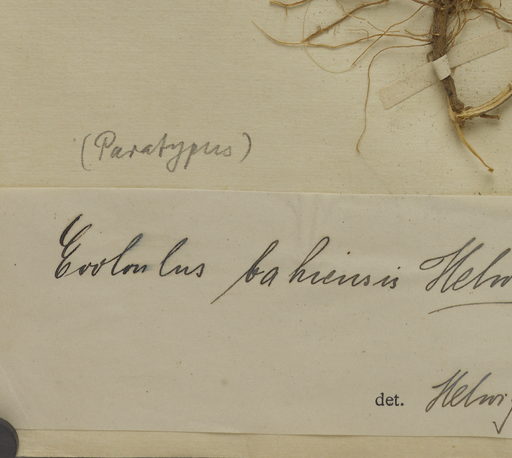 (Paratypus)
Evolvulus bahiensis Helw
det. Helwig